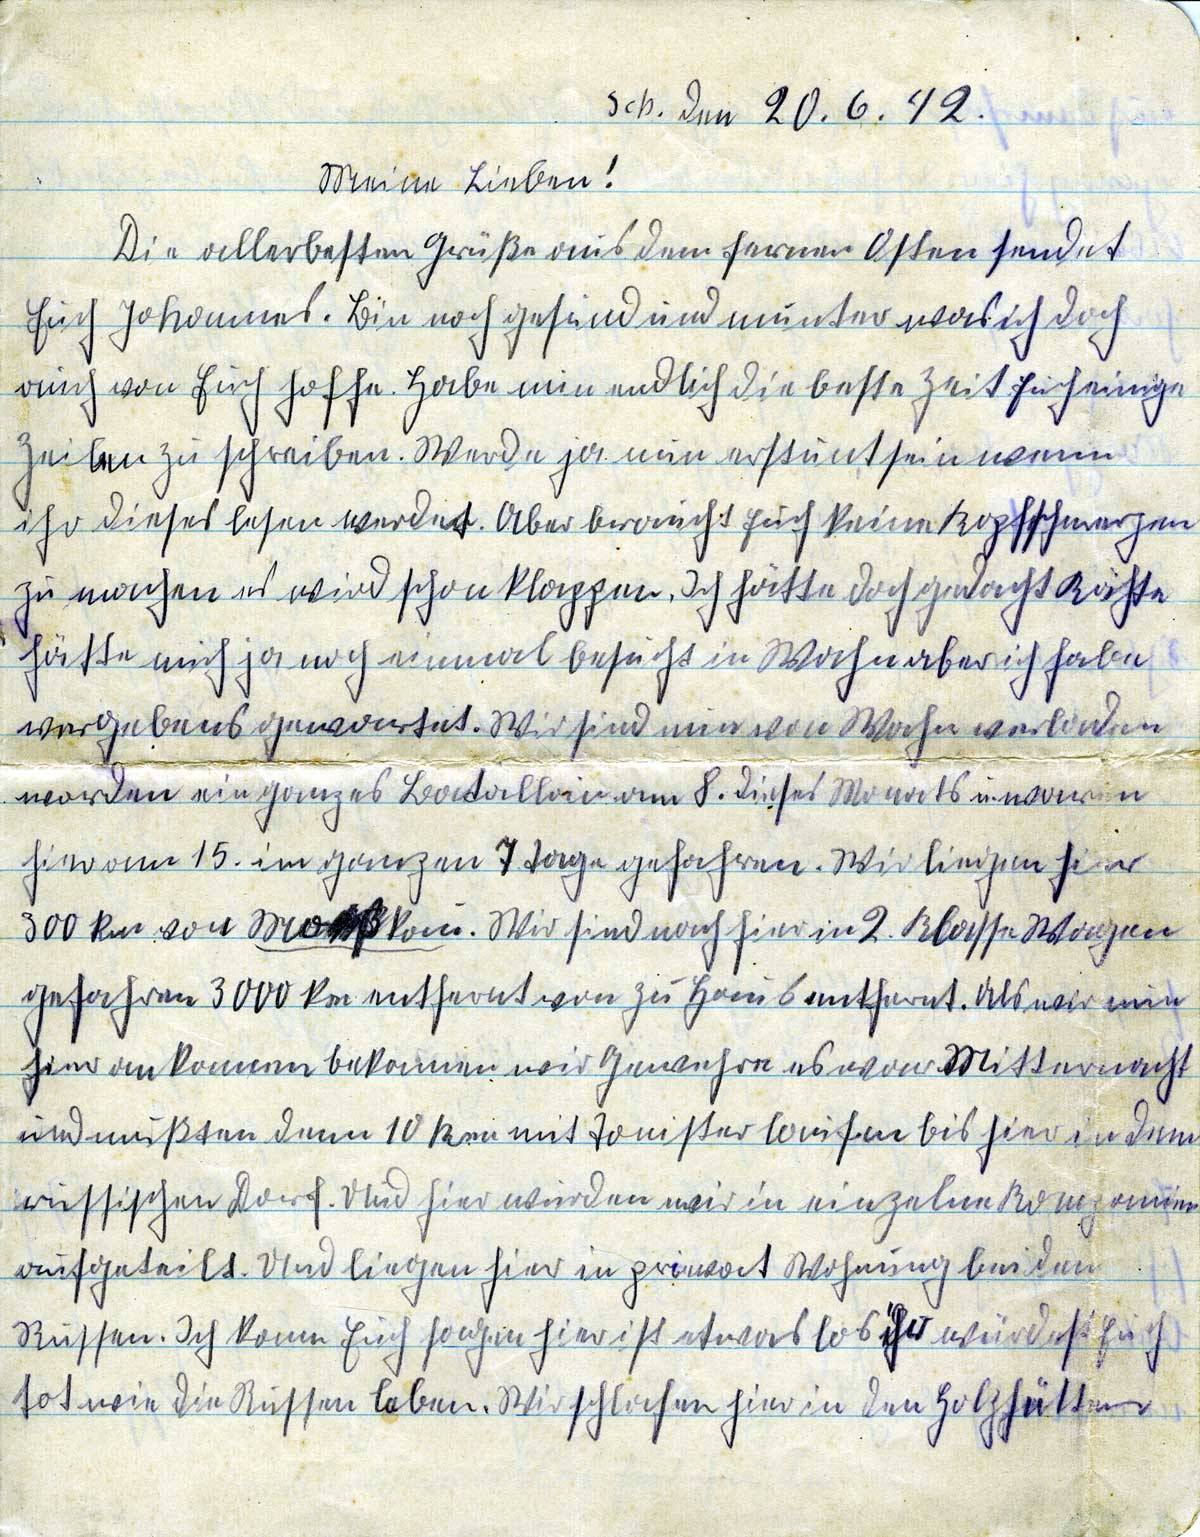 Sch. den 20.6.42.
Meine Lieben!
Die allerbesten Grüße aus dem fernen Osten sendet
Euch Johannes. Bin noch gesund und munter was ich doch
auch von Euch hoffe. Habe nun endlich die beste Zeit Euch einige
Zeilen zu schreiben. Werde ja nun erstunt sein wenn
ihr dieses lesen werdet. Aber braucht Euch keine Kopfschmerzen
zu machen es wird schon klappen. Ich hätte doch gedacht Käthe
hätte mich ja noch einmal besucht in Wahn aber ich habe
vergebens gewartet. Wir sind nun von Wahn verladen
worden ein ganzes Batallion am 8. dieses Monats u. waren
hier am 15. im ganzen 7 Tage gefahren. Wir liegen hier
300 km von Moskau. Wir sind nach hier in 2. Klasse Wagen
gefahren 3000 km entfernt von zu Haus entfernt. Als wir nun
hier an kamen bekamen wir Gewehre es war Mitternacht
und mußten dann 10 km mit Tonister laufen bis hier in dem
russischen Dorf. Und hier wurden wir in einzelne Kompanien
aufgeteilt. Und liegen hier in priewat Wohnung bei den
Russen. Ich kann Euch sagen hier ist etwas los ihr würdest Euch
tot wie die Russen leben. Wir schlafen hier in den Holzhütten